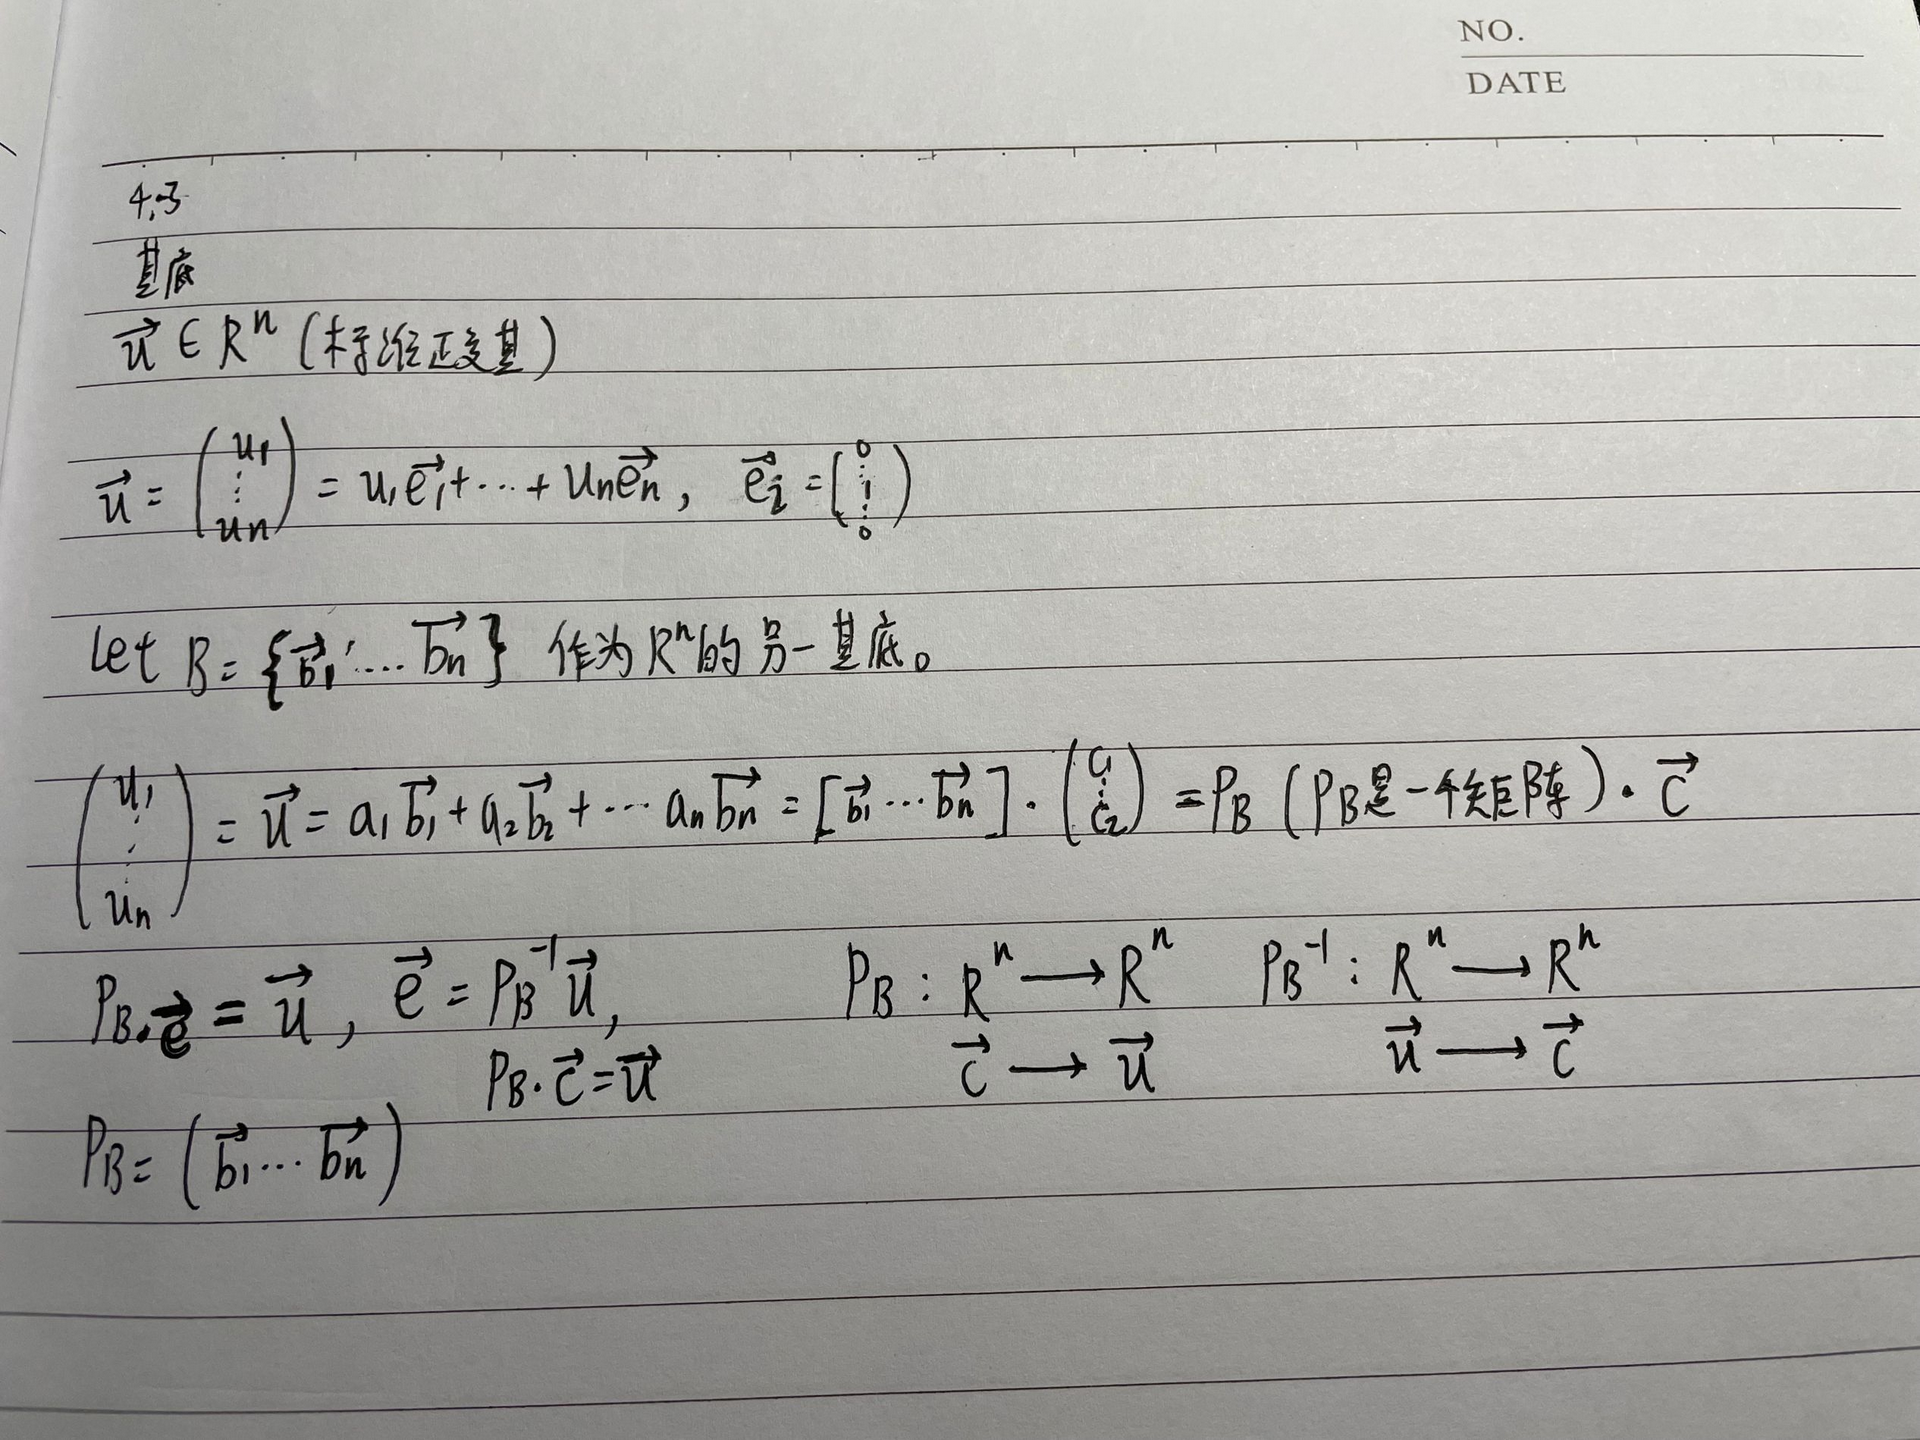 NO.
DATE
4.3
基底
u⃗ ∈ Rⁿ (标准正交基)
u⃗ = (u₁ ⋮ uₙ) = u₁e⃗₁ + ⋯ + uₙe⃗ₙ , e⃗ᵢ = (0 ⋮ 1 ⋮ 0)
Let B = {b⃗₁, … b⃗ₙ} 作为 Rⁿ 的另一基底。
(u₁ ⋮ uₙ) = u⃗ = a₁b⃗₁ + a₂b⃗₂ + ⋯ aₙb⃗ₙ = [b⃗₁ ⋯ b⃗ₙ] · (c₁ ⋮ c₂) = P_B (P_B是一个矩阵) · c⃗
P_B · e⃗ = u⃗ , e⃗ = P_B⁻¹ u⃗ , P_B : Rⁿ ⟶ Rⁿ P_B⁻¹ : Rⁿ ⟶ Rⁿ
P_B · c⃗ = u⃗ c⃗ ⟶ u⃗ u⃗ ⟶ c⃗
P_B = (b⃗₁ ⋯ b⃗ₙ)